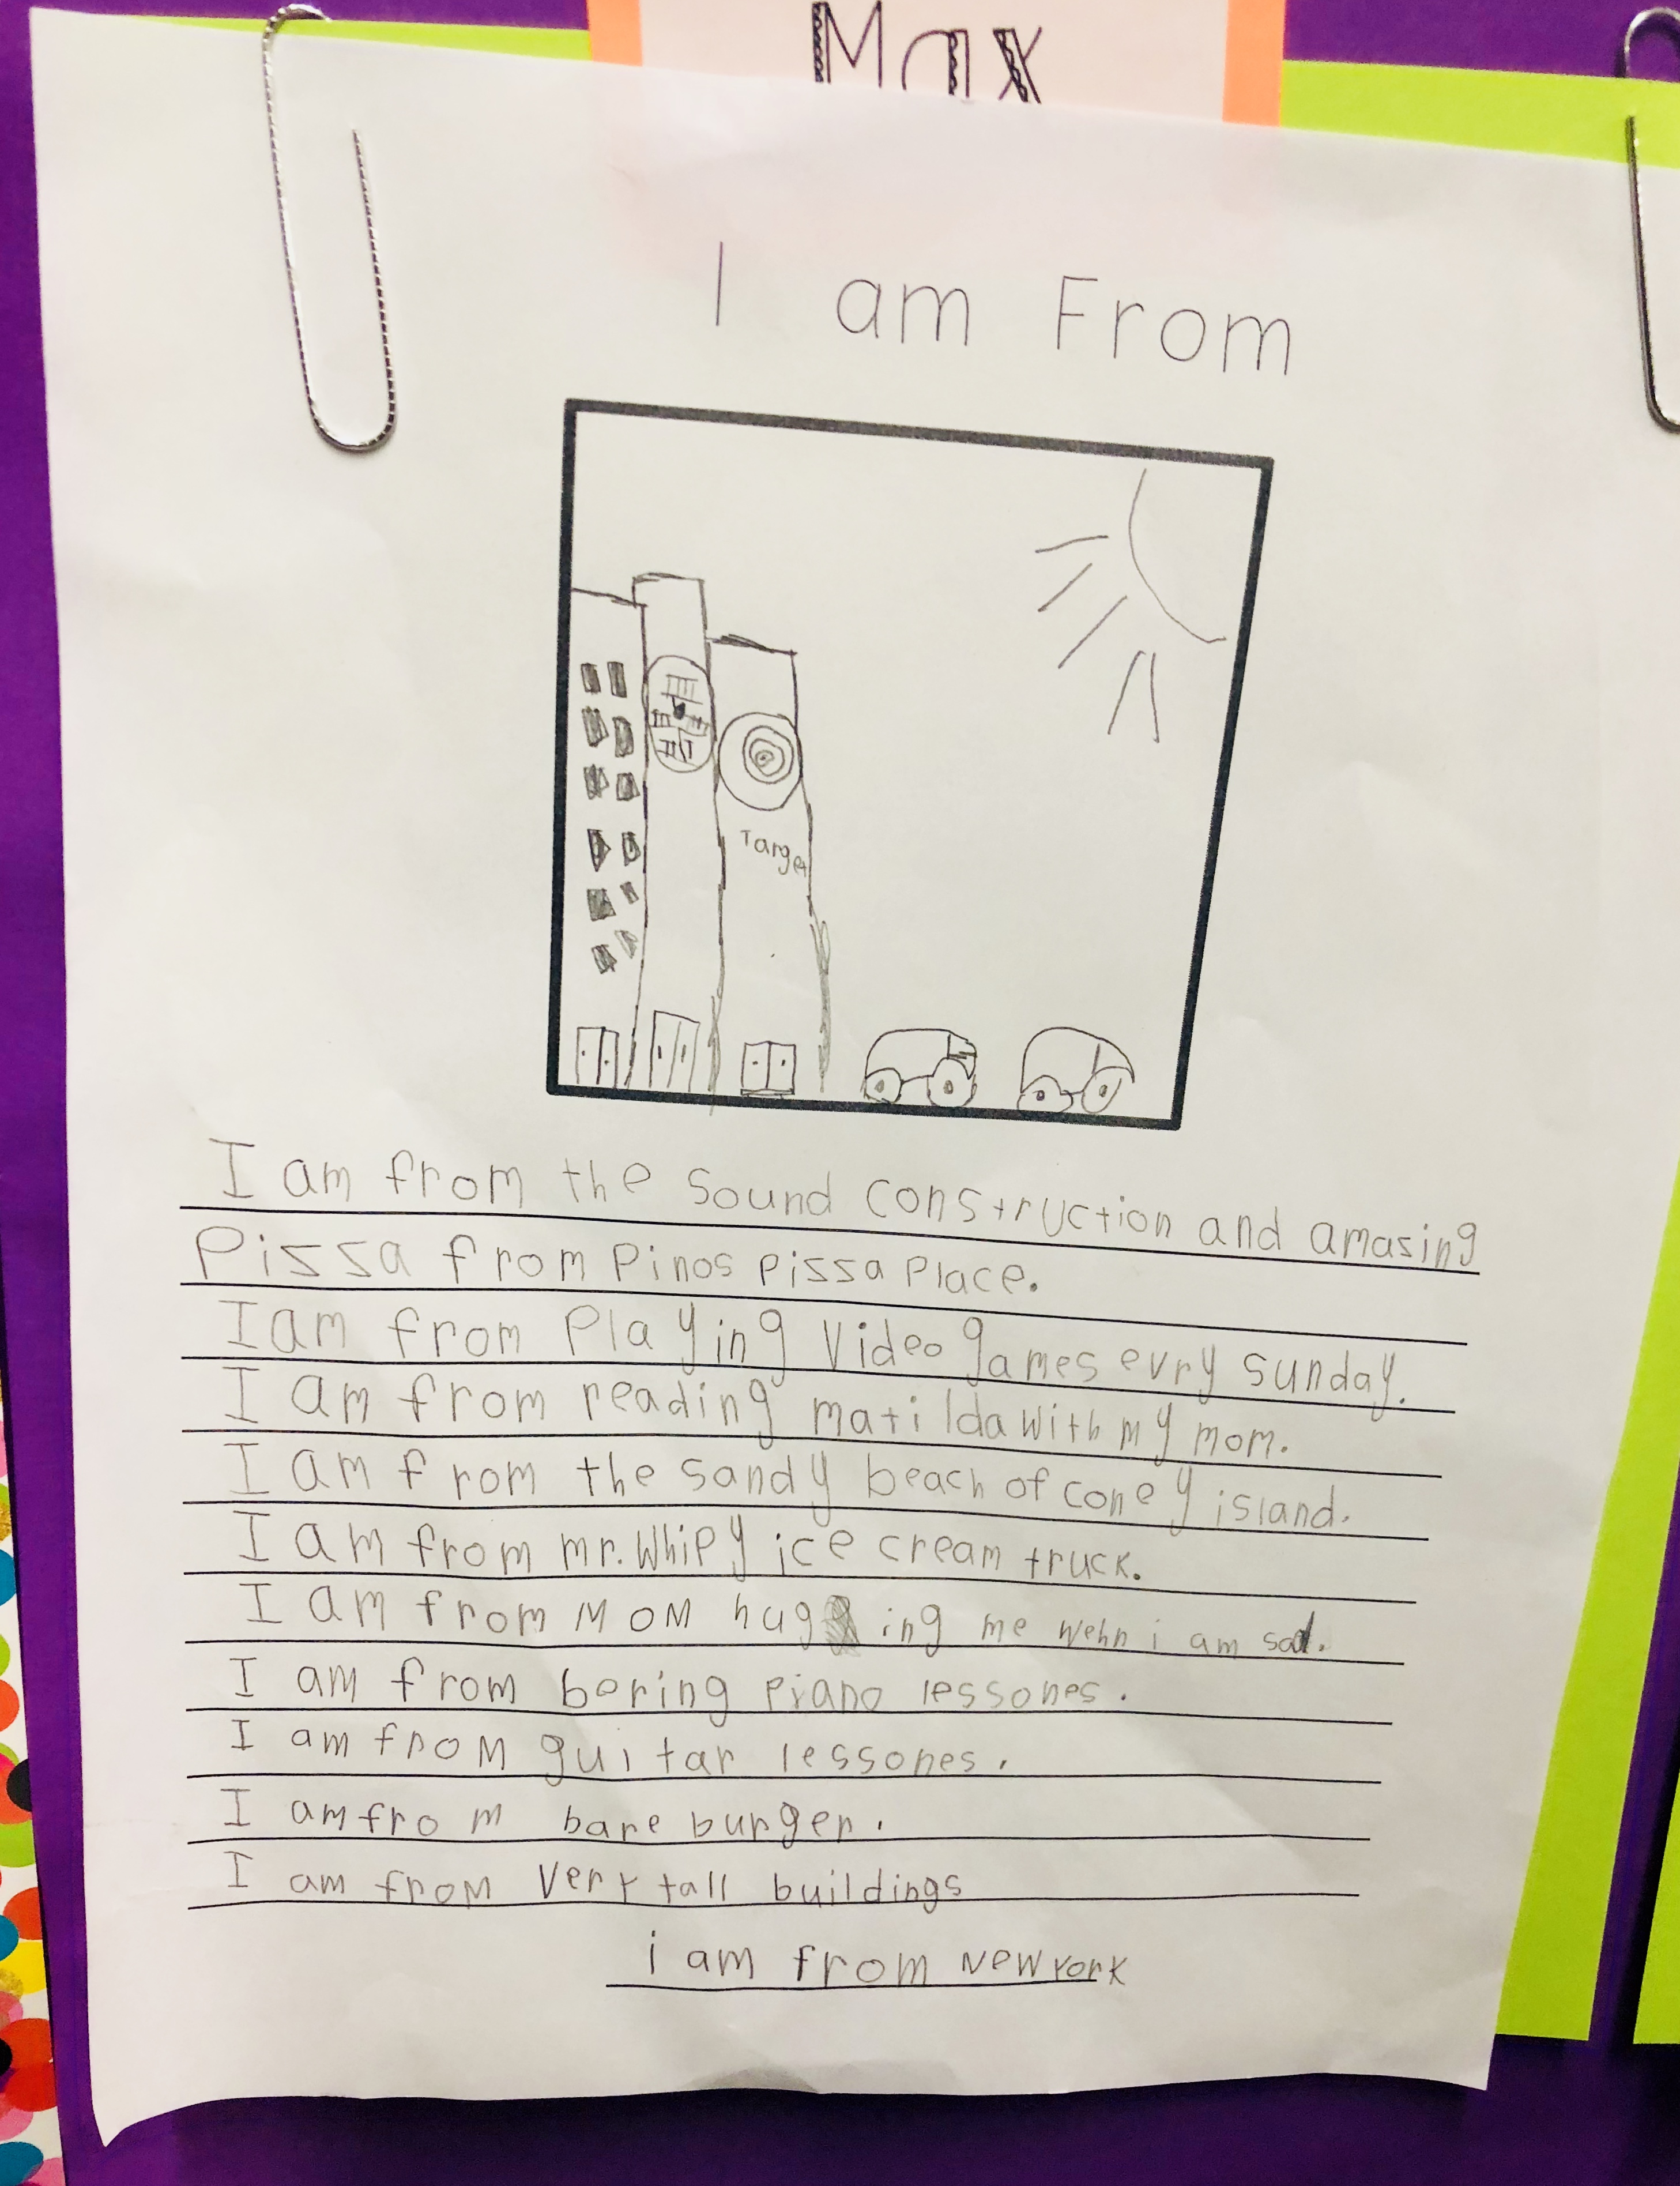 Max
I am From
Target
I am from the sound construction and amasing
Pissa from Pinos pissa place.
I am from Playing Video games evry sunday.
I am from reading matilda with my mom.
I am from the sandy beach of coney island.
I am from mr. Whipy ice cream truck.
I am from MOM hugging me wehn i am sad.
I am from boring piano lessones.
I am from guitar lessones.
I am from bare burger.
I am from Very tall buildings
i am from New York